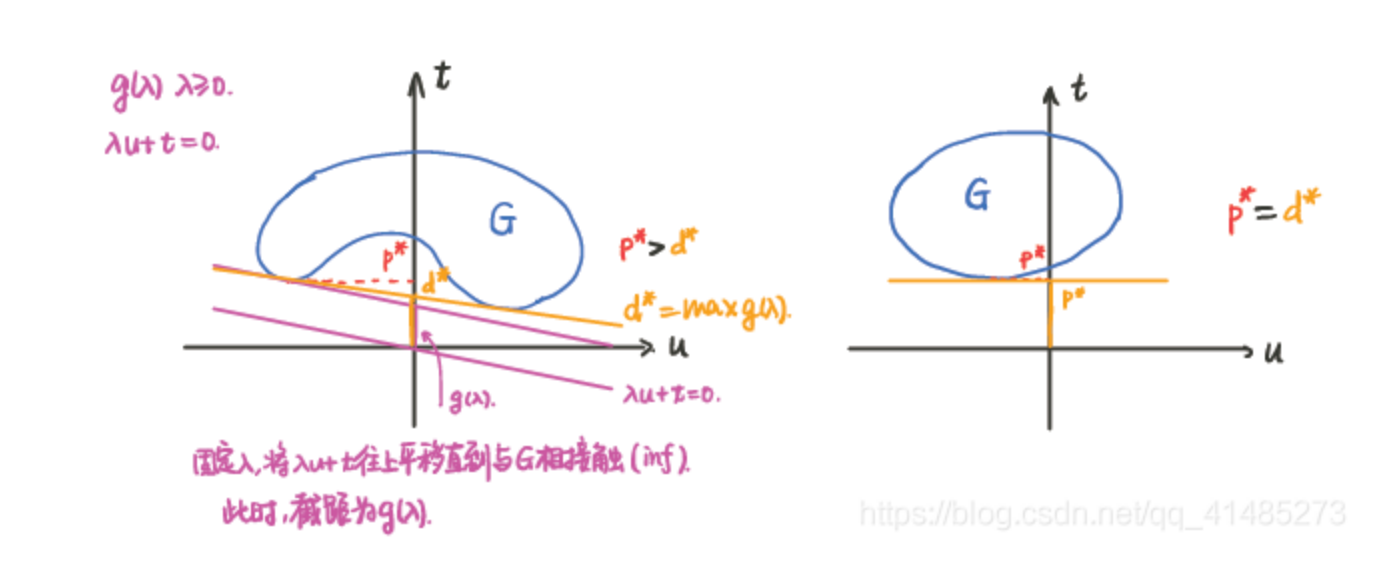 g(λ) λ≥0.
λu+t=0.
t
G
p*
d*
p*>d*
d*=max g(λ).
u
g(λ).
λu+t=0.
固定λ,将λu+t往上平移直到与G相接触(inf).
此时,截距为g(λ).
t
G
p*
p*
p*=d*
u
https://blog.csdn.net/qq_41485273